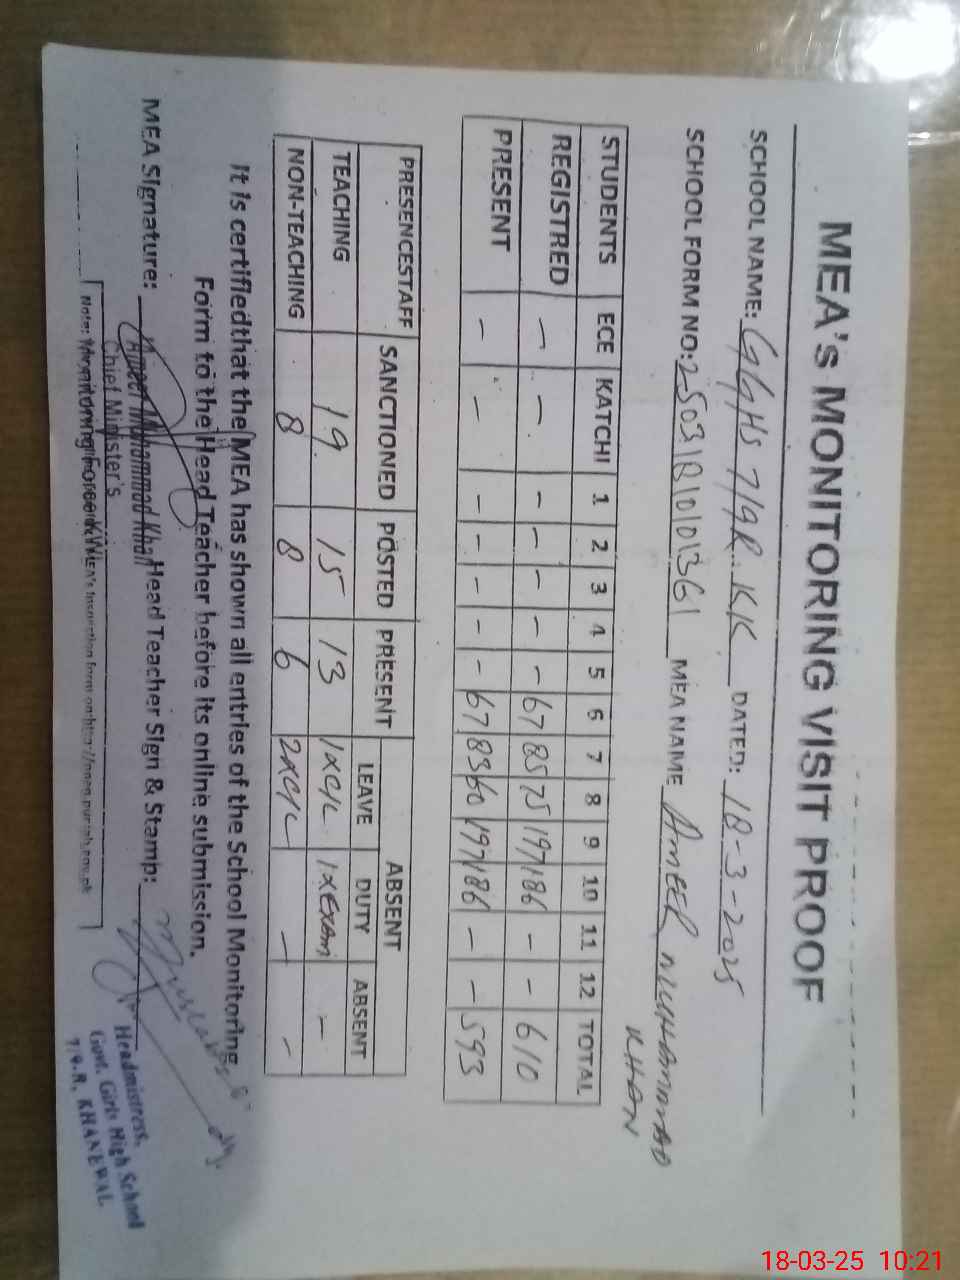 MEA's MONITORING VISIT PROOF
SCHOOL NAME: GGHS 7/9R. KK DATED: 18-3-2025
SCHOOL FORM NO: MEA NAME AMEER MUHAMMAD
KHAN
STUDENTS ECE KATCHI 1 2 3 4 5 6 7 8 9 10 11 12 TOTAL
REGISTRED - - - - - - - 67 85 75 197 186 - - 610
PRESENT - - - - - - - 67 83 60 197 186 - - 593
PRESENCESTAFF SANCTIONED POSTED PRESENT ABSENT
LEAVE DUTY ABSENT
TEACHING 19 15 13 1xC/L 1xExam -
NON-TEACHING 8 8 6 2xC/L - -
It is certifiedthat the MEA has shown all entries of the School Monitoring
Form to the Head Teacher before its online submission.
MEA Signature: Head Teacher Sign & Stamp:
Ameer Muhammad Khan
Chief Minister's
Headmistress,
Govt. Girls High School
7/9-R, KHANEWAL
18-03-25 10:21